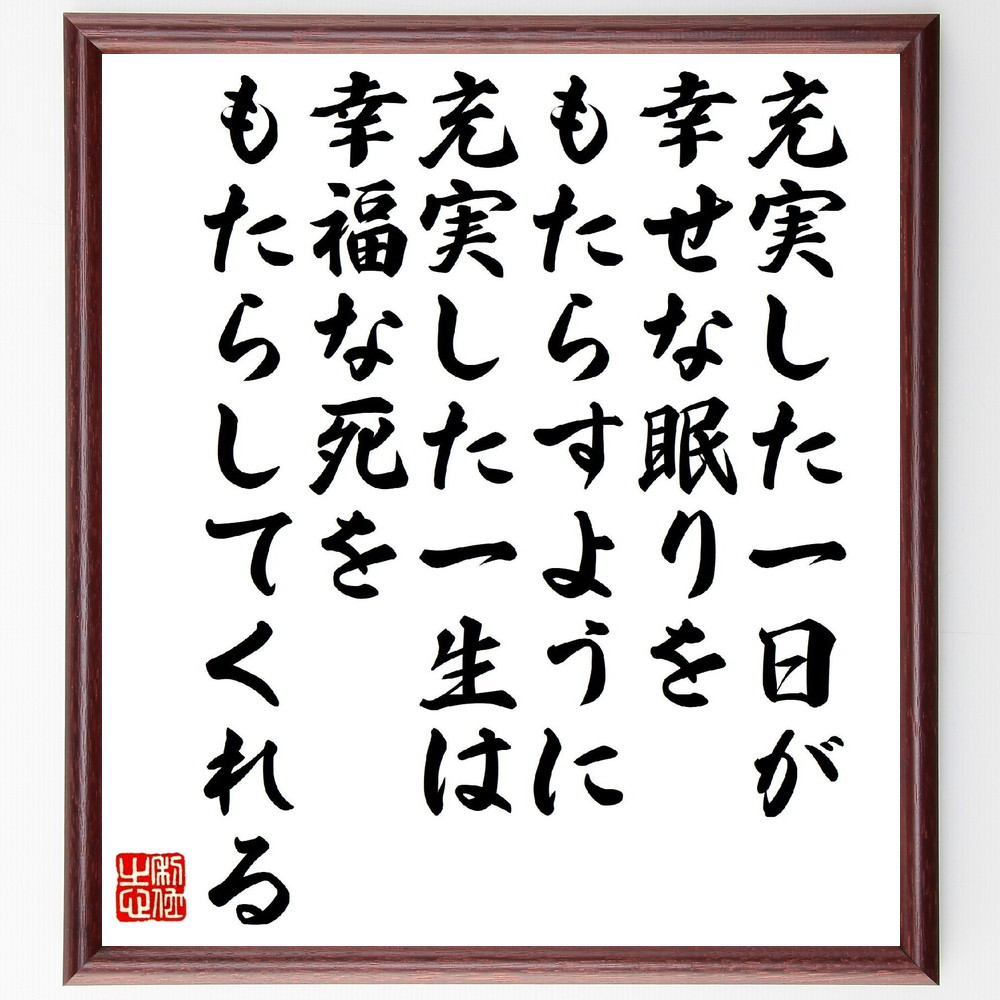 充実した一日が
幸せな眠りを
もたらすように
充実した一生は
幸福な死を
もたらしてくれる